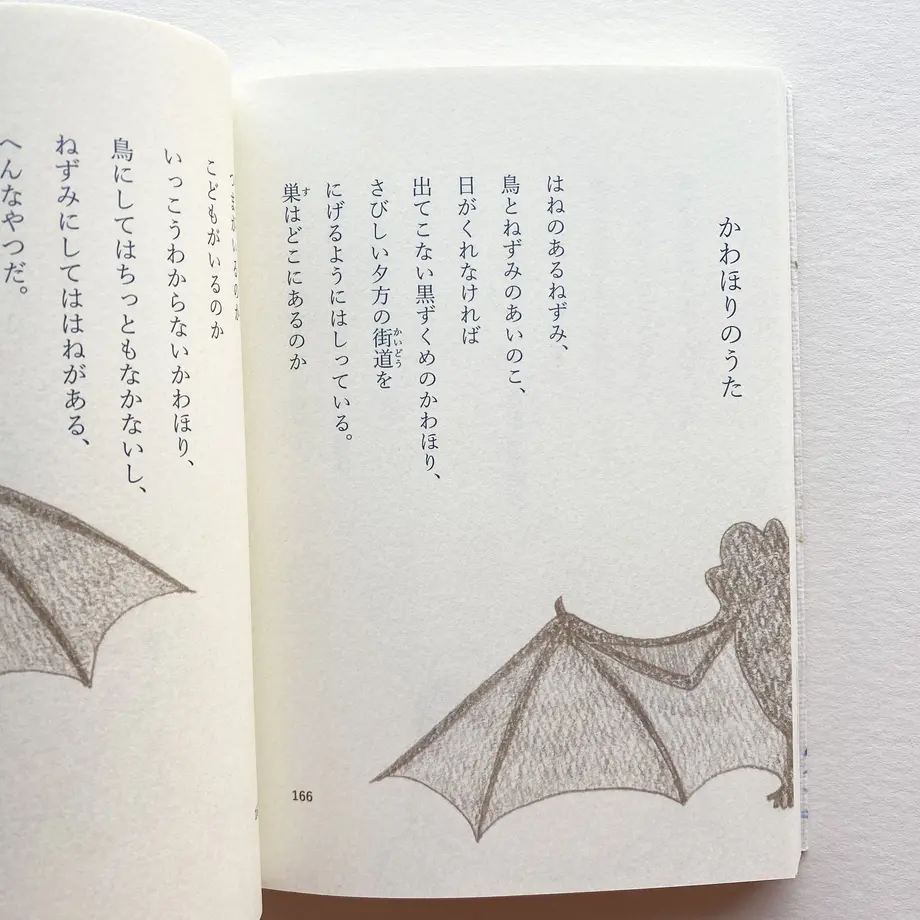 かわほりのうた
はねのあるねずみ、
鳥とねずみのあいのこ、
日がくれなければ
出てこない黒ずくめのかわほり、
さびしい夕方の街道を
かいどう
にげるようにはしっている。
巣はどこにあるのか
す
166
こどもがいるのか
いっこうわからないかわほり、
鳥にしてはちっともなかないし、
ねずみにしてははねがある、
へんなやつだ。